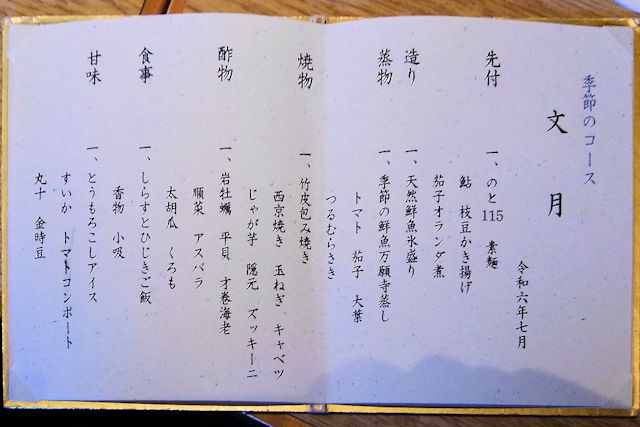 季節のコース
文月
令和六年七月
先付
一、のと115 素麺
鮎 枝豆かき揚げ
茄子オランダ煮
造り
一、天然鮮魚氷盛り
蒸物
一、季節の鮮魚万願寺蒸し
トマト 茄子 大葉
つるむらさき
焼物
一、竹皮包み焼き
西京焼き 玉ねぎ キャベツ
じゃが芋 隠元 ズッキーニ
酢物
一、岩牡蠣 平貝 才巻海老
順菜 アスパラ
太胡瓜 くろも
食事
一、しらすとひじきご飯
香物 小吸
甘味
一、とうもろこしアイス
すいか トマトコンポート
丸十 金時豆